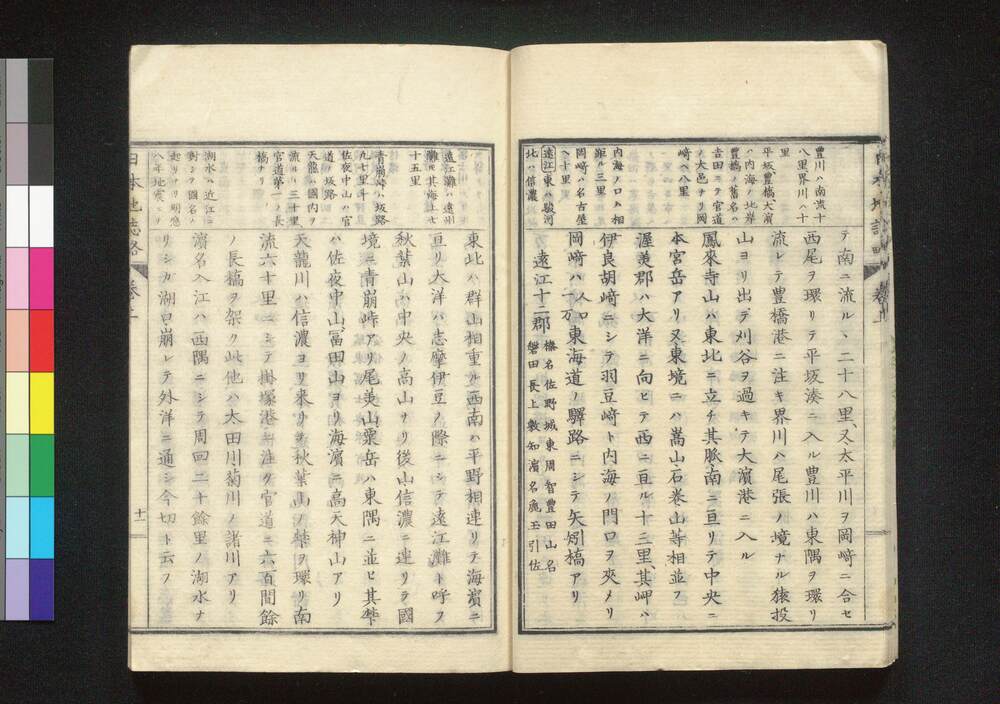 豊川ハ南流十
八里界川ハ十
里
平坂豊橋大濱
ハ内海ノ北岸
豊橋ノ舊名ハ
吉田ニテ官道
ノ大邑ナリ岡
崎ヘ八里
内海ノ口ハ相
距ル三里
岡崎ハ名古屋
ヘ十里
遠江東ハ駿河
北ハ信濃
テ南ニ流ル、二十八里、又太平川ヲ岡崎ニ合セ
西尾ヲ環リテ平坂湊ニ入ル豊川ハ東隅ヲ環リ
流レテ豊橋港ニ注キ界川ハ尾張ノ境ナル猿投
山ヨリ出デ刈谷ヲ過キテ大濱港ニ入ル
鳳來寺山ハ東北ニ立チ其脈南ニ亘リテ中央ニ
本宮岳アリ又東境ニハ嵩山石巻山等相並フ
渥美郡ハ大洋ニ向ヒテ西ニ亘ル十三里其岬ハ
伊良胡崎ニシテ羽豆崎ト内海ノ門口ヲ夾メリ
岡崎ハ人口一万東海道ノ驛路ニシテ矢矧橋アリ
遠江十二郡
榛名佐野城東周智豊田山名
磐田長上敷知濱名麁玉引佐
遠江灘ハ遠州
灘其海岸七
十五里
青崩峠ハ坂路
九七里半
佐夜中山ハ官
道ノ坂路
天龍ハ國内ヲ
流ルヽ三十里
官道第一ノ長
橋ナリ
湖水ハ近江ニ
對シテ國名ノ
起リナリ明應
八年地震ヨリ
東北ハ群山相重ナル西南ハ平野相連リテ海濱ニ
亘リ大洋ハ志摩伊豆ノ際ニシテ遠江灘ト呼フ
秋葉山ハ中央ノ高山ナリ後山信濃ニ連リテ國
境ニ青崩峠アリ尾羙山粟岳ハ東隅ニ並ヒ其攀
ハ佐夜中山冨田山ヨリ海濱ニ高天神山アリ
天龍川ハ信濃ヨリ來リテ秋葉山ノ攀ヲ環リ南
流六十里ニシテ掛塚港ニ注ク官道ニ六百間餘
ノ長橋ヲ架ク此他ハ太田川菊川ノ諸川アリ
濱名入江ハ西隅ニシテ周回二十餘里ノ湖水ナ
リシガ湖口崩レテ外洋ニ通シ今切ト云フ
日本地誌略
卷二
十一